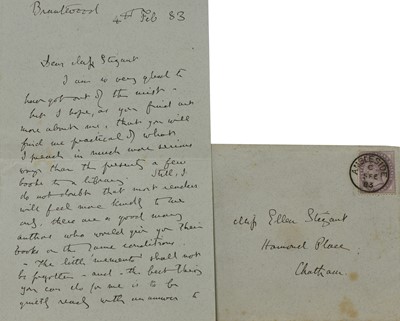 Brantwood
4th Feb 83
Dear Miss Stezant
I am so very glad to
have got out of the mist -
but I hope, as you find out
more about me, that you will
find me practical of what
I preach in much more serious
ways than the presents a few
books to a library. Still, I
do not doubt that most readers
will feel more kindly to me
only. there are a good many
authors who would give you their
books on the same conditions
- The little memento shall not
be forgotten - and - the best thing
you can do for me is to be
quietly ready with an answer to
AMBLESIDE
C
FE
83
Miss Ellen Stezant
Hamond Place
Chatham